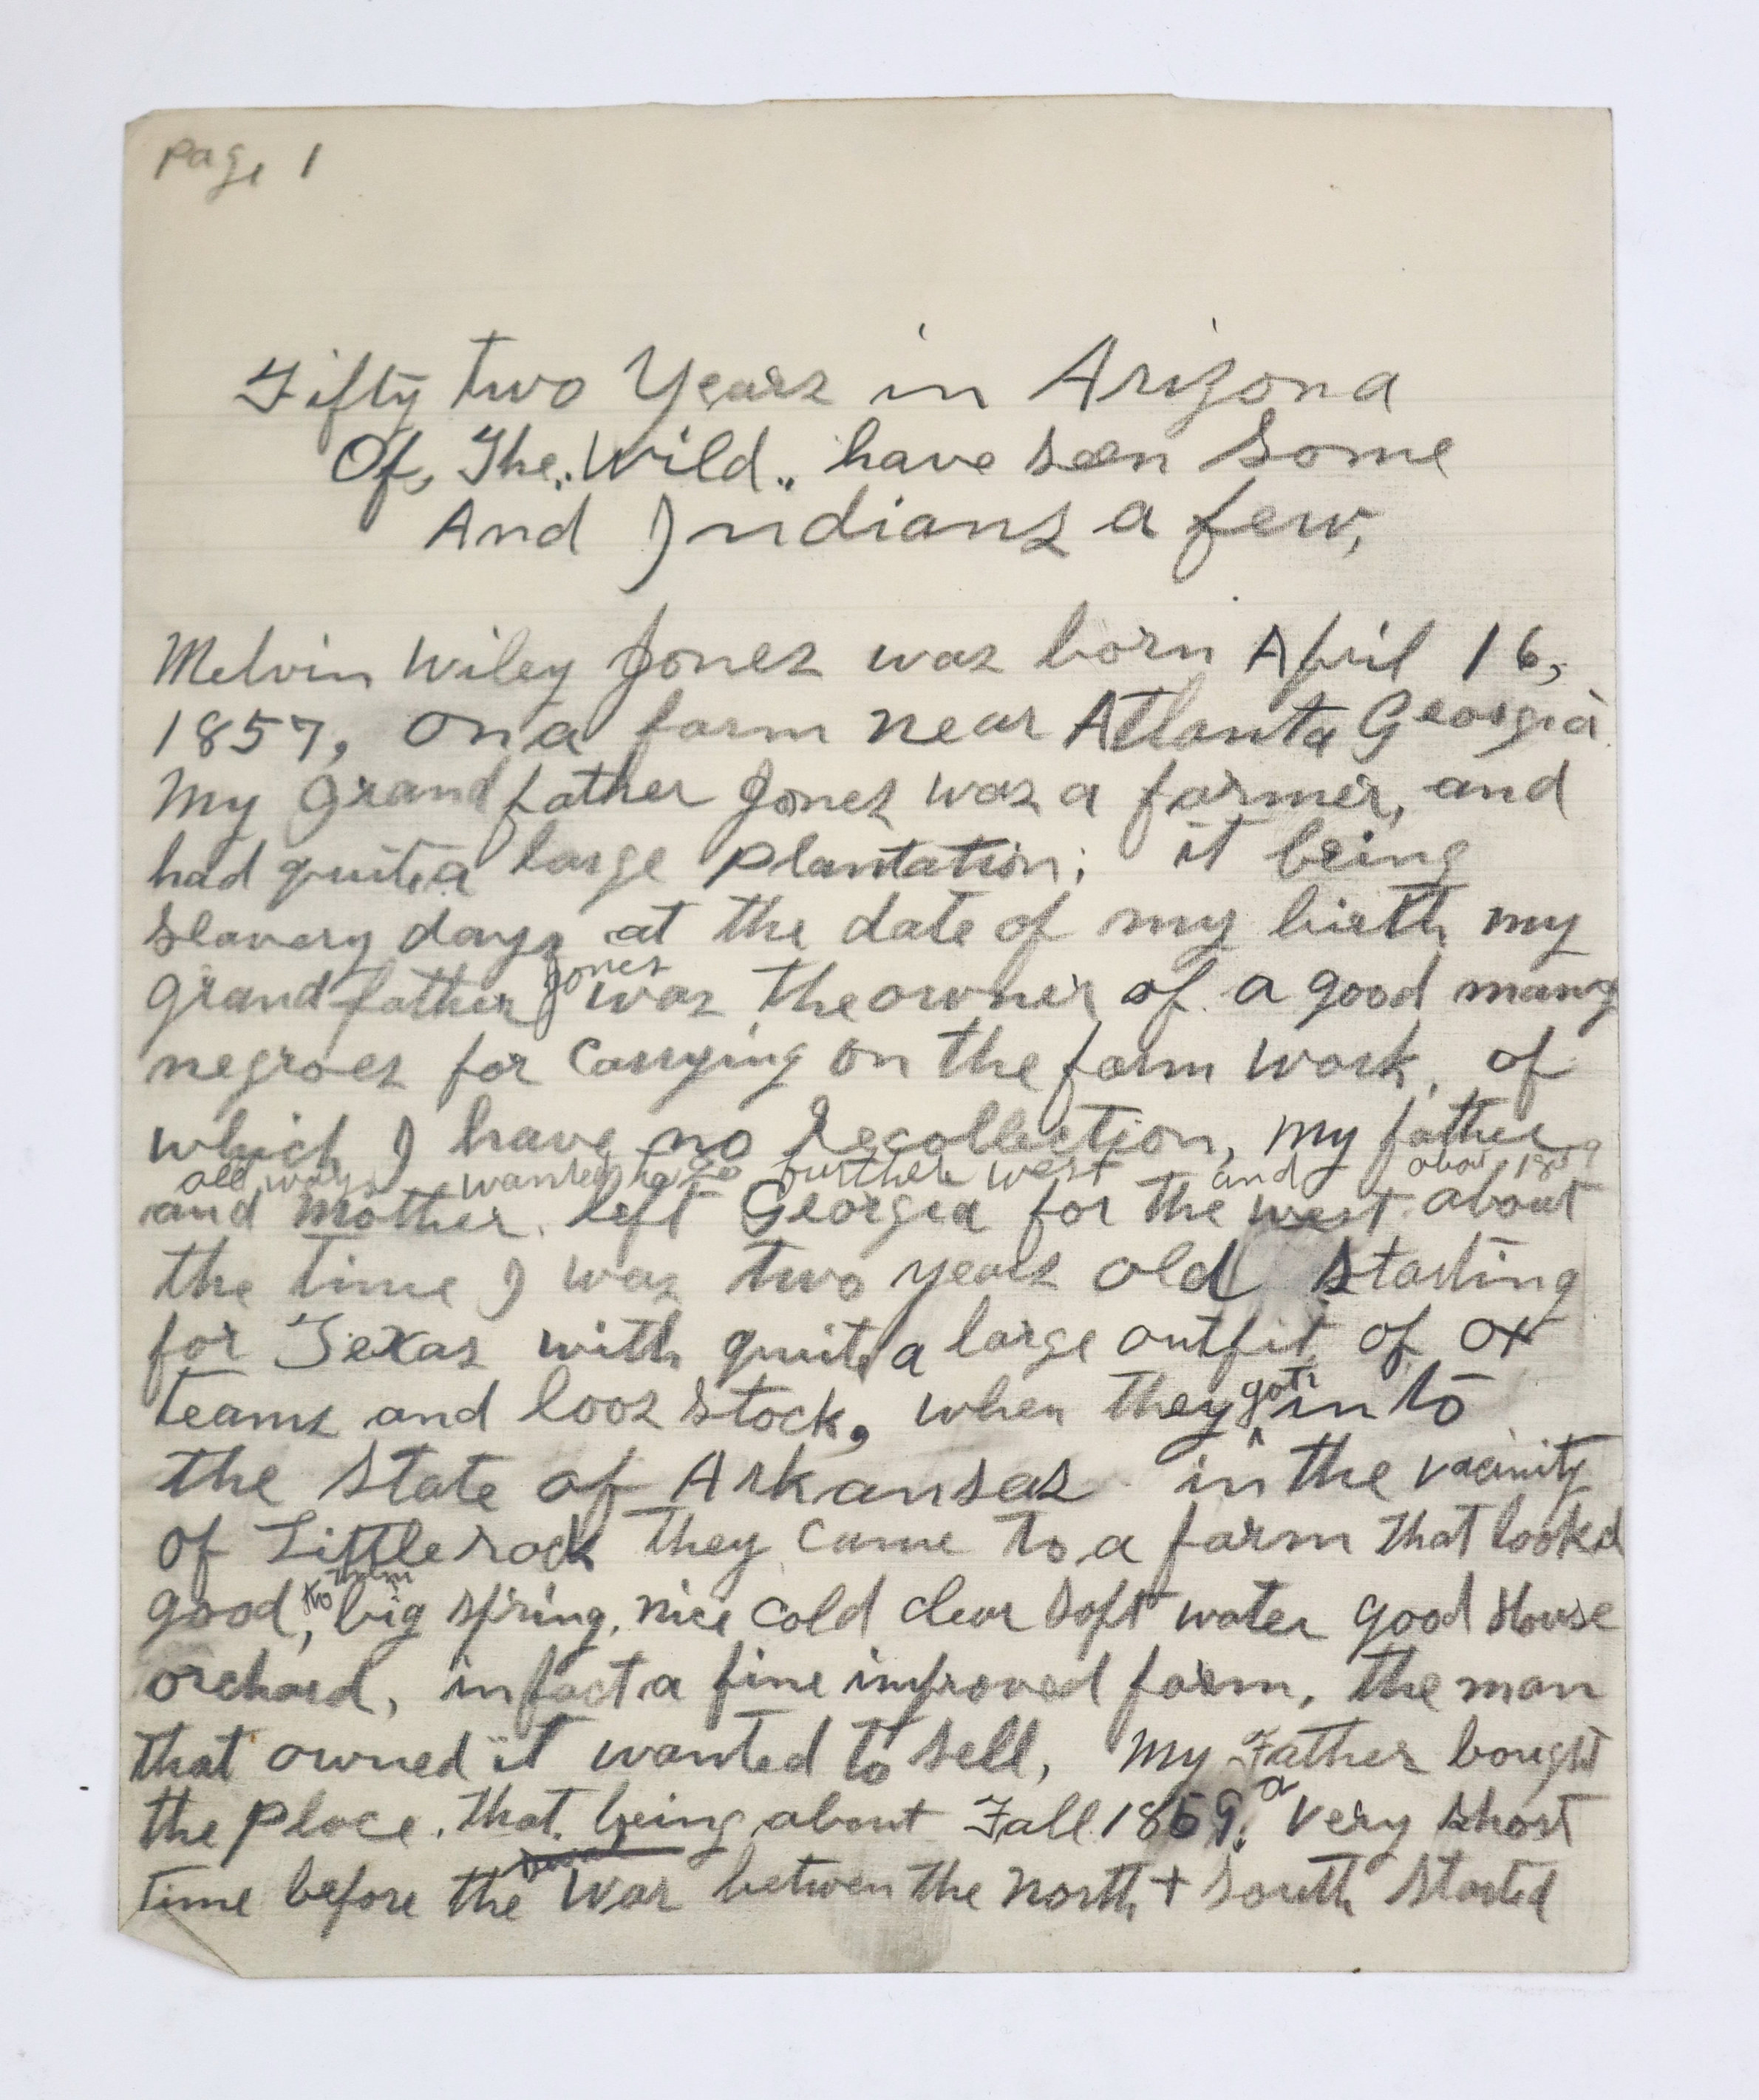 Page 1
Fifty two Years in Arizona
Of, The "Wild" have seen Some
And Indians a few,
Melvin Wiley Jones was born April 16,
1857, on a farm near Atlanta Georgia
My Grand father Jones was a farmer, and
had quite a large plantation; it being
slavery days at the date of my birth my
Jones
grand father was the owner of a good many
negroes for carrying on the farm work, of
which I have no Recollection, My father
all ways wanted to go further west and about 1859
and mother left Georgia for the west about
the time I was two years old starting
for Texas with quite a large outfit of ox
got
teams and loos stock, when they into
the State of Arkansas in the vacinity
of Little rock they came to a farm that looked
to them
good, big spring, nice cold clear soft water good House
orchard, in fact a fine improved farm, the man
that owned it wanted to sell, My Father bought
a
the place, that being about Fall 1859, very short
time before the War between the North + South started